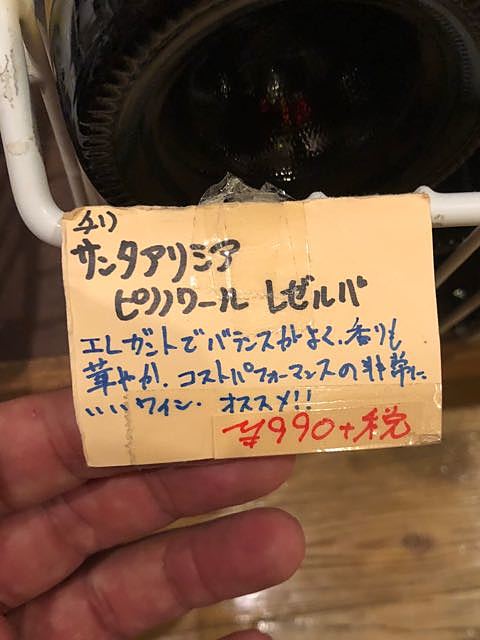 チリ
サンタアリシア
ピノノワール レゼルバ
エレガントでバランスがよく、香りも
華やか。コストパフォーマンスの非常に
いいワイン。オススメ!!
¥990+税